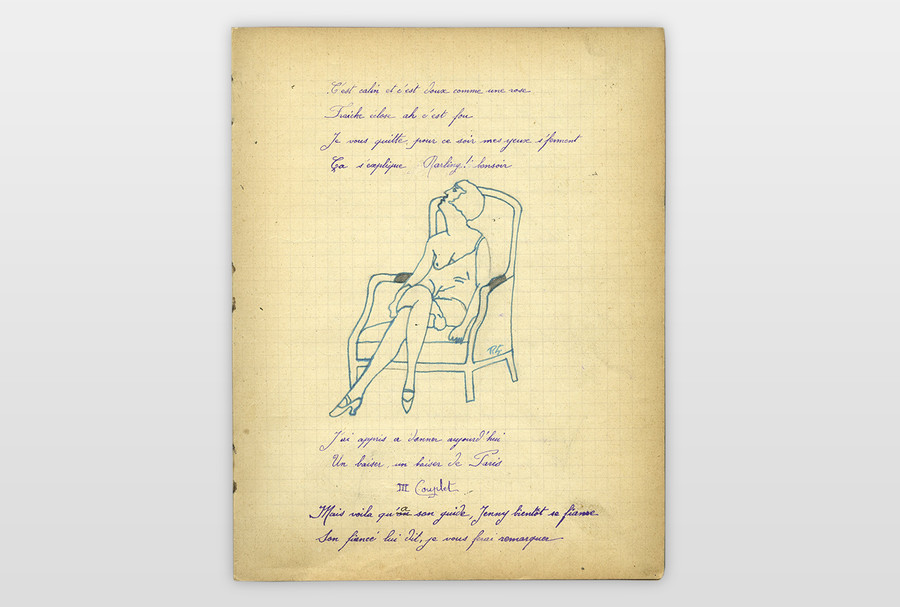 C'est calin et c'est doux comme une rose
Fraiche éclose ah c'est fou
Je vous quitte, pour ce soir mes yeux s'ferment
Ça s'explique, Darling! bonsoir
J'ai appris a donner aujourd'hui
Un baiser, un baiser de Paris
III Couplet
Mais voila qu'a son guide, Jenny bientôt se fiance
Son fiancé lui dit, je vous ferai remarquer